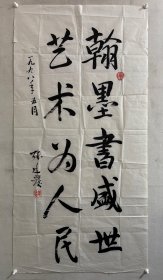 翰墨书盛世
艺术为人民
一九九八年五月